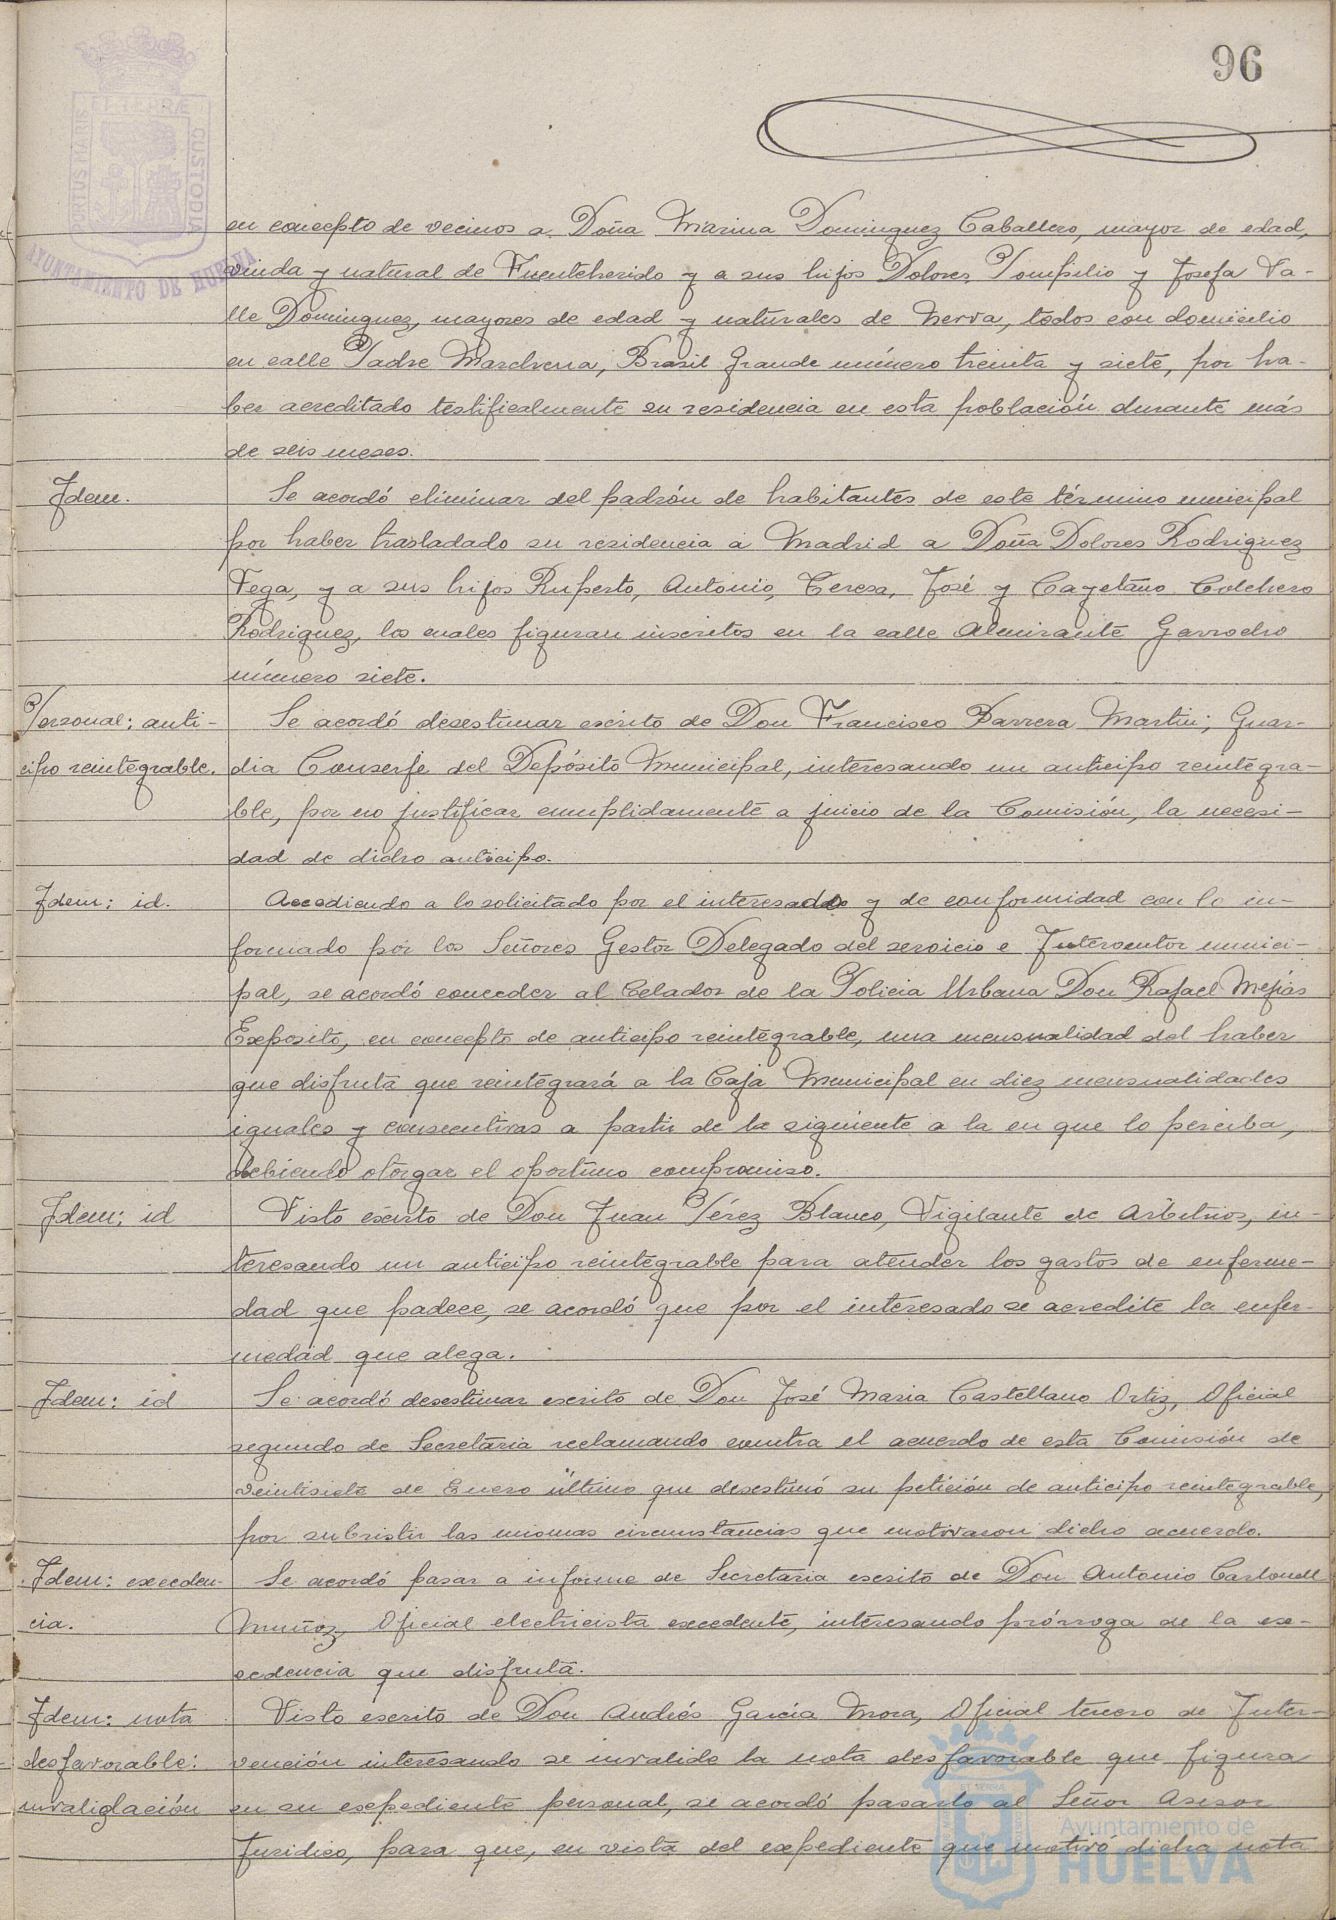 96
PORTUS MARIS ET TERRÆ CUSTODIA
AYUNTAMIENTO DE HUELVA
en concepto de vecinos a Doña Marina Dominguez Caballero, mayor de edad,
viuda y natural de Fuenteherido y a sus hijos Dolores, Pompilio y Josefa Va-
lle Dominguez, mayores de edad y naturales de Nerva, todos con domicilio
en calle Padre Marchena, Brasil Grande número treinta y siete, por ha-
ber acreditado testificalmente su residencia en esta población durante más
de seis meses.
Idem. Se acordó eliminar del padrón de habitantes de este término municipal
por haber trasladado su residencia a Madrid a Doña Dolores Rodriguez
Vega, y a sus hijos Ruperto, Antonio, Teresa, José y Cayetano Colchero
Rodriguez, los cuales figuran inscritos en la calle Almirante Garrocho
número siete.
Personal: anti- Se acordó desestimar escrito de Don Francisco Barrera Martin, Guar-
cipo reintegrable. dia Conserje del Depósito Municipal, interesando un anticipo reintegra-
ble, por no justificar cumplidamente a juicio de la Comisión, la necesi-
dad de dicho anticipo.
Idem: id. Accediendo a lo solicitado por el interesado y de conformidad con lo in-
formado por los Señores Gestor Delegado del servicio e Interventor munici-
pal, se acordó conceder al Celador de la Policia Urbana Don Rafael Mejías
Exposito, en concepto de anticipo reintegrable, una mensualidad del haber
que disfruta que reintegrará a la Caja Municipal en diez mensualidades
iguales y consecutivas a partir de la siguiente a la en que lo perciba,
debiendo otorgar el oportuno compromiso.
Idem: id Visto escrito de Don Juan Pérez Blanco, Vigilante de Arbitrios, in-
teresando un anticipo reintegrable para atender los gastos de enferme-
dad que padece, se acordó que por el interesado se acredite la enfer-
medad que alega.
Idem: id Se acordó desestimar escrito de Don José Maria Castellano Ortiz, Oficial
segundo de Secretaria reclamando contra el acuerdo de esta Comisión de
veintisiete de Enero último que desestimó su petición de anticipo reintegrable,
por subsistir las mismas circunstancias que motivaron dicho acuerdo.
Idem: exceden- Se acordó pasar a informe de Secretaria escrito de Don Antonio Carbonell
cia. Muñoz, Oficial electricista excedente, interesando prórroga de la ex-
cedencia que disfruta.
Idem: nota Visto escrito de Don Andrés García Mora, Oficial tercero de Inter-
desfavorable: vención interesando se invalide la nota desfavorable que figura
invalidación en su expediente personal, se acordó pasarlo al Señor Asesor
Juridico, para que, en vista del expediente que motivó dicha nota
Ayuntamiento de
HUELVA